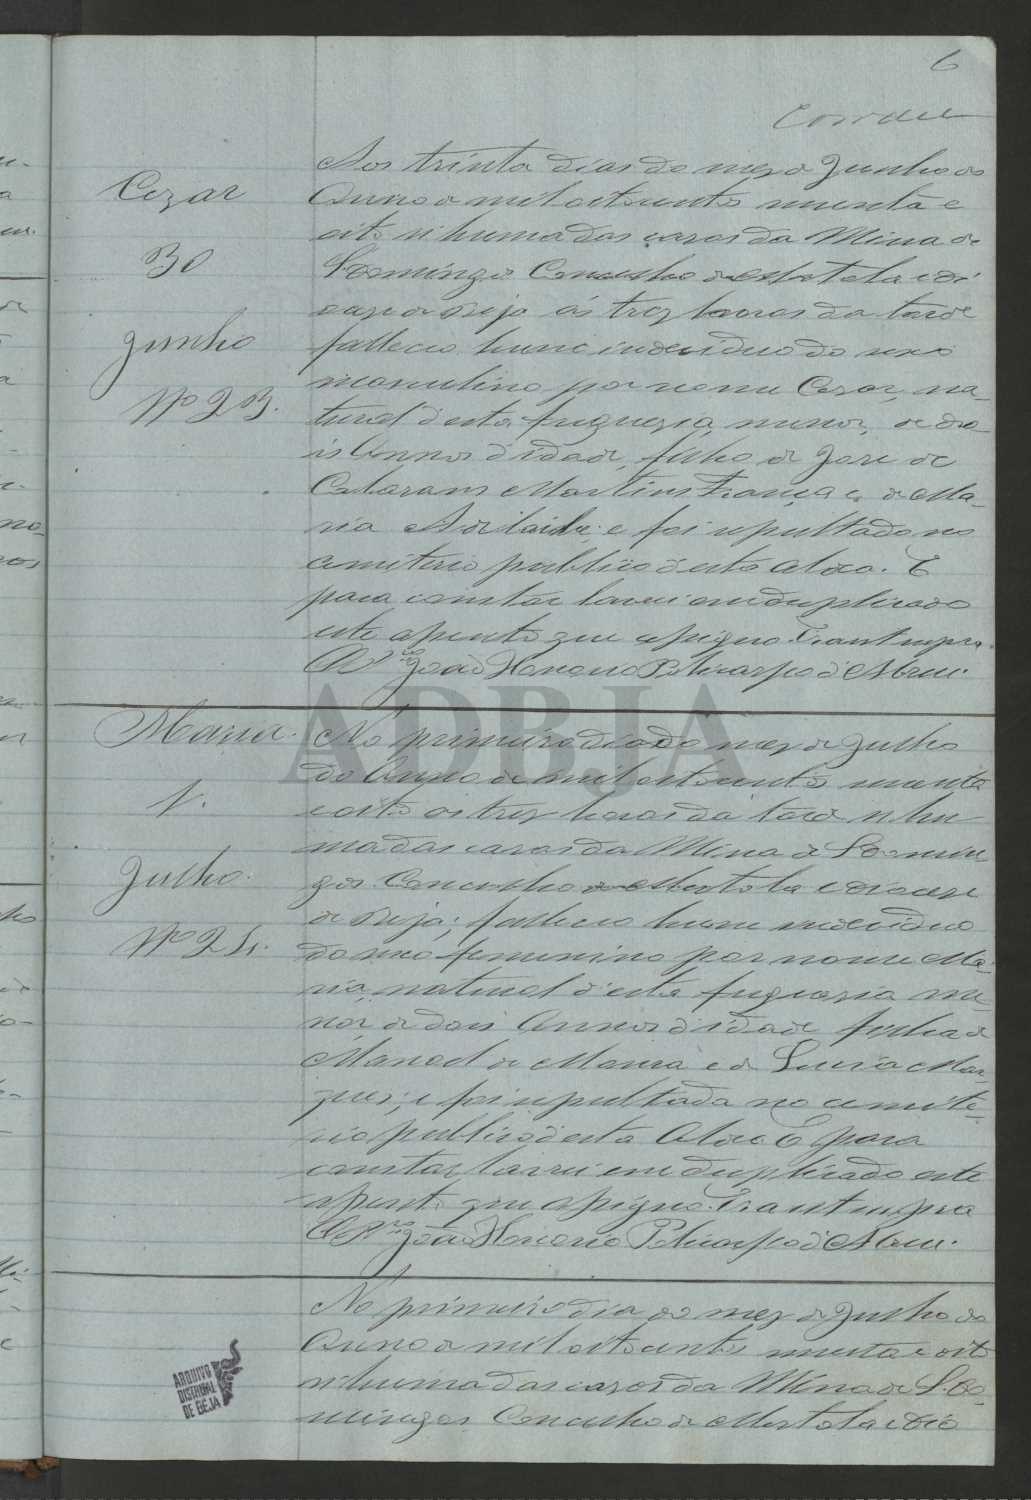 6
Cezar
30
Junho
Nº 23.
Aos trinta dias do mez de Junho do
Anno de mil oitocentos noventa e
oito n'huma das casas da Mina de
S. Domingos Concelho de Mertola e dio
cese de Beja ás trez horas da tarde
falleceo hum individuo do sexo
masculino por nome Cezar, na-
tural d'esta freguezia, menor, de do-
is Annos d'idade, filho de José de
Martins França e de Ma-
ria Adelaide; e foi sepultado no
cemiterio publico d'esta Aldea. E
para constar lavrei em duplicado
este assento que assigno. Era ut supra.
João Honorio Policarpo d'Abreu.
Maria.
1.
Julho.
Nº 24.
No primeiro dia do mez de Julho
do Anno de mil oitocentos noventa
e oito ás trez horas da tarde n'hu
ma das casas da Mina de S. Domin
gos Concelho de Mertola e diocese
de Beja; falleceo hum individuo
do sexo femenino por nome Ma-
ria, natural d'esta freguezia me-
nor de dois Annos d'idade filha de
Manoel de Moura e de Luzia Mar-
ques; e foi sepultada no cemite-
rio publico d'esta Aldea. E para
constar lavrei em duplicado este
assento que assigno. Era ut supra
João Honorio Policarpo d'Abreu.
No primeiro dia do mez de Julho do
Anno de mil oitocentos noventa e oito
n'huma das casas da Mina de S. Do-
mingos Concelho de Mertola e dio
ADBJA
ARQUIVO
DISTRITAL
DE BEJA